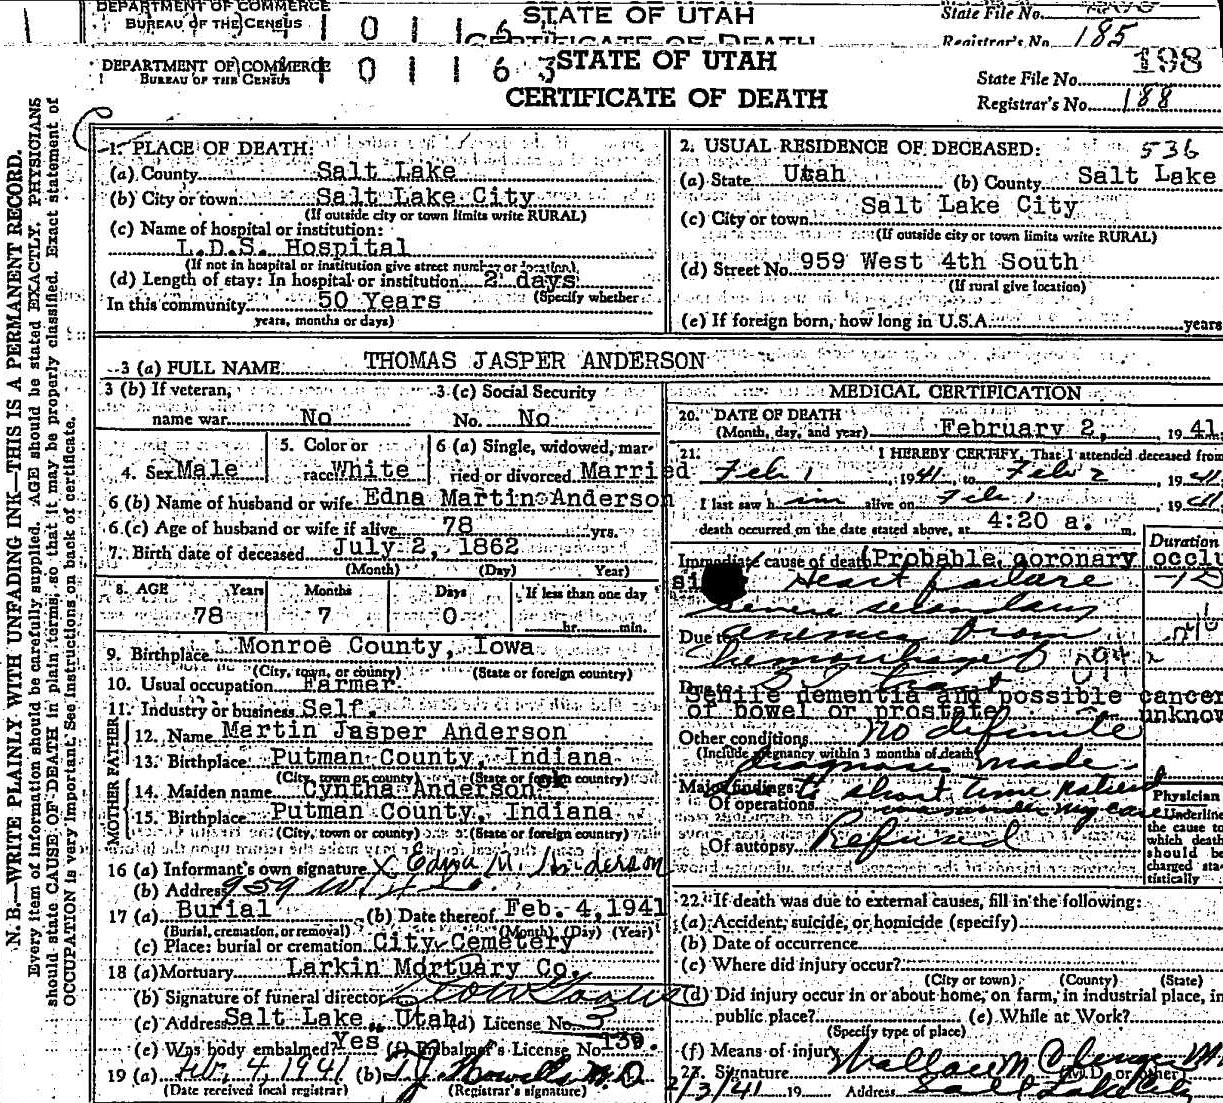 DEPARTMENT OF COMMERCE
BUREAU OF THE CENSUS
STATE OF UTAH
CERTIFICATE OF DEATH
State File No.
Registrar's No. 185
DEPARTMENT OF COMMERCE
BUREAU OF THE CENSUS
1 0 1 1 6 3
STATE OF UTAH
CERTIFICATE OF DEATH
State File No. 198
Registrar's No. 188
N. B.—WRITE PLAINLY WITH UNFADING INK—THIS IS A PERMANENT RECORD.
Every item of information should be carefully supplied. AGE should be stated EXACTLY. PHYSICIANS
should state CAUSE OF DEATH in plain terms, so that it may be properly classified. Exact statement of
OCCUPATION is very important. See instructions on back of certificate.
1. PLACE OF DEATH:
(a) County Salt Lake
(b) City or town Salt Lake City
(If outside city or town limits write RURAL)
(c) Name of hospital or institution:
L.D.S. Hospital
(If not in hospital or institution give street number or location)
(d) Length of stay: In hospital or institution 2 days
In this community 50 Years (Specify whether
years, months or days)
2. USUAL RESIDENCE OF DECEASED: 536
(a) State Utah (b) County Salt Lake
(c) City or town Salt Lake City
(If outside city or town limits write RURAL)
(d) Street No. 959 West 4th South
(If rural give location)
(e) If foreign born, how long in U.S.A. years
3 (a) FULL NAME THOMAS JASPER ANDERSON
3 (b) If veteran, name war No
3 (c) Social Security No. No
4. Sex Male
5. Color or race White
6 (a) Single, widowed, married or divorced Married
6 (b) Name of husband or wife Edna Martin Anderson
6 (c) Age of husband or wife if alive 78 yrs.
7. Birth date of deceased July 2, 1862
(Month) (Day) Year)
8. AGE Years Months Days If less than one day
78 7 0 hr. min.
9. Birthplace Monroe County, Iowa
(City, town, or county) (State or foreign country)
10. Usual occupation Farmer
11. Industry or business Self.
FATHER
12. Name Martin Jasper Anderson
13. Birthplace Putman County, Indiana
(City, town or county) (State or foreign country)
MOTHER
14. Maiden name Cyntha Anderson
15. Birthplace Putman County, Indiana
(City, town or county) (State or foreign country)
16 (a) Informant's own signature X Edna M. Anderson
(b) Address 959 W 4 So.
17 (a) Burial (b) Date thereof Feb. 4, 1941
(Burial, cremation, or removal) (Month) (Day) (Year)
(c) Place: burial or cremation City Cemetery
18 (a) Mortuary Larkin Mortuary Co.
(b) Signature of funeral director
(c) Address Salt Lake, Utah (d) License No. 3
(e) Was body embalmed? Yes (f) Embalmer's License No. 139.
19 (a) Feb. 4, 1941 (b) M.D.
(Date received local registrar) (Registrar's signature)
MEDICAL CERTIFICATION
20. DATE OF DEATH
(Month, day, and year) February 2, 1941
21. I HEREBY CERTIFY, That I attended deceased from
Feb 1, 1941, to Feb 2, 1941
I last saw him alive on Feb 1, 1941
death occurred on the date stated above, at 4:20 a. m.
Duration
Immediate cause of death (Probable coronary occlu
si
Heart failure
severe secondary
Due to anemia from
hemorrhages
Due to
Senile dementia and possible cancer
of bowel or prostate unknow
Other conditions No definite
(Include pregnancy within 3 months of death)
diagnosis made
Major findings: to short time
Of operations
Of autopsy Refused
Physician
Underline
the cause to
which death
should be
charged sta-
tistically
22. If death was due to external causes, fill in the following:
(a) Accident, suicide, or homicide (specify)
(b) Date of occurrence
(c) Where did injury occur?
(City or town) (County) (State)
(d) Did injury occur in or about home, on farm, in industrial place, in
public place? (e) While at Work?
(Specify type of place)
(f) Means of injury
23. Signature Wallace M.
(M.D. or other)
2/3/41 19 Address Salt Lake City